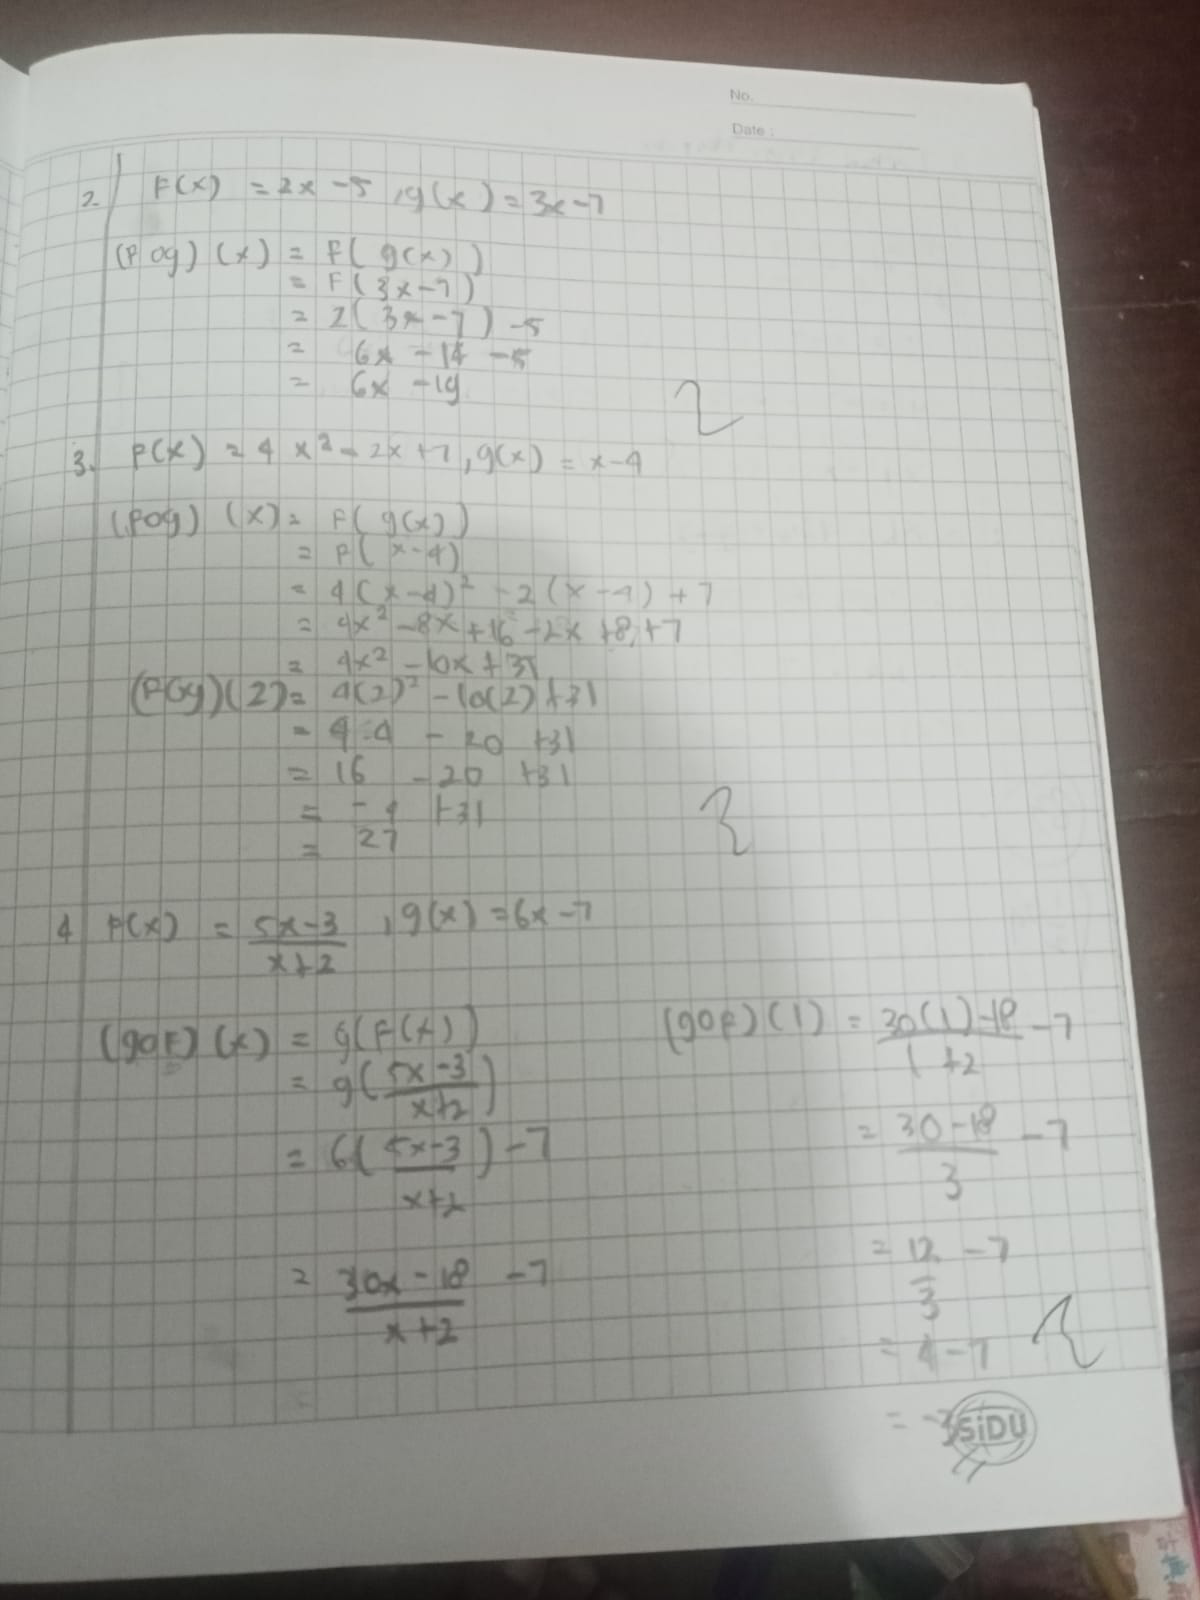 No.
Date :
2. F(x) = 2x -5 , g(x) = 3x -7
(F og) (x) = F( g(x) )
= F( 3x -7 )
= 2( 3x -7 ) -5
= 6x - 14 -5
= 6x -19
3. F(x) = 4 x² - 2x +7 , g(x) = x -4
(fog) (x) = F( g(x) )
= F( x -4)
= 4 (x -4)² - 2 (x -4) + 7
= 4x² -8x +16 -2x +8 +7
= 4x² -10x +31
(Fog) (2) = 4(2)² -10(2) +31
= 4 . 4 - 20 +31
= 16 - 20 +31
= - 4 +31
= 27
4 F(x) = 5x -3 / x+2 , g(x) = 6x -7
(goF) (x) = g(F(x))
= g( 5x -3 / x+2 )
= 6( 5x -3 / x+2 ) -7
= 30x - 18 / x +2 -7
(goF) (1) = 30(1) -18 / 1 +2 -7
= 30 -18 / 3 -7
= 12 / 3 -7
= 4 -7
= -3
SiDU